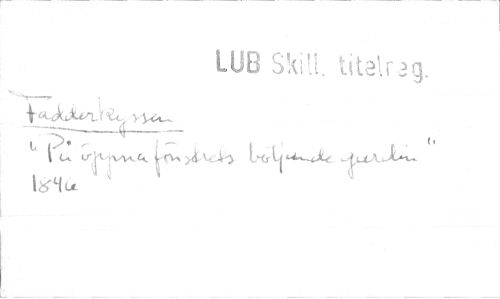 LUB Skill. titelreg.
Fadderkyssen
"På öppna fönstrets böljande gardin"
1846